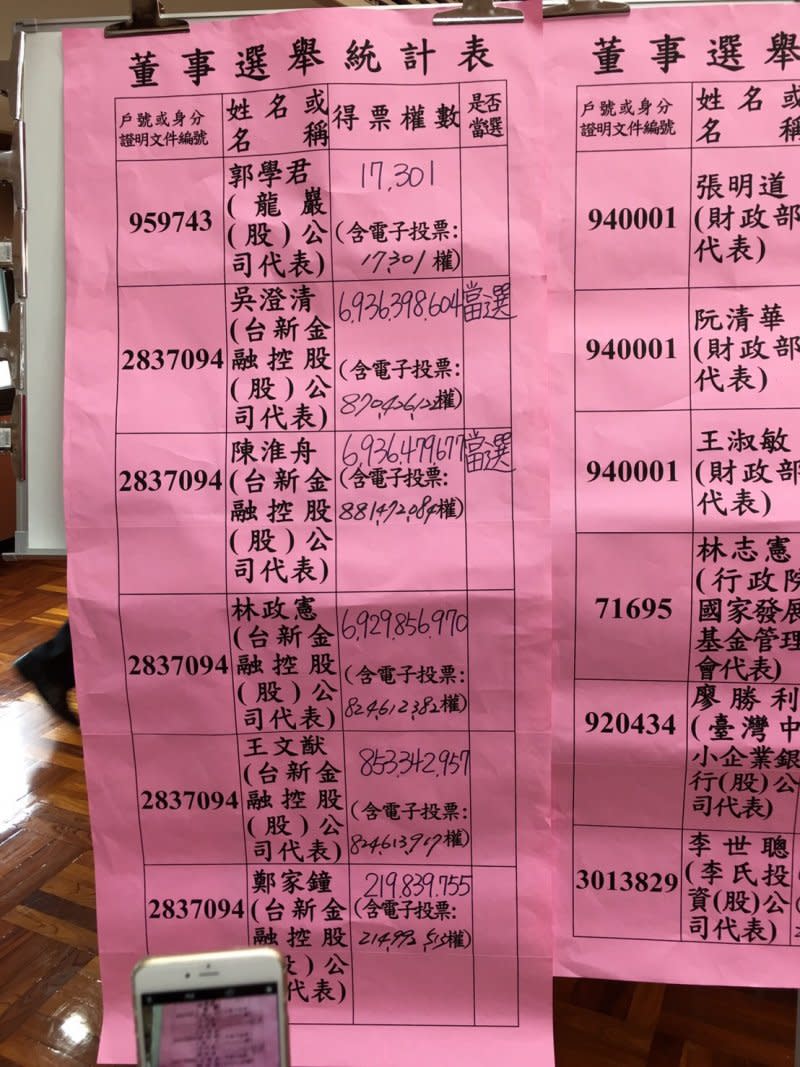 董事選舉統計表
戶號或身分
證明文件編號
姓名或
名稱
得票權數
是否
當選
959743
郭學君
(龍巖
(股)公
司代表)
17,301
(含電子投票:
17,301權)
2837094
吳澄清
(台新金
融控股
(股)公
司代表)
6,936,398,604
當選
(含電子投票:
870,426,122權)
2837094
陳淮舟
(台新金
融控股
(股)公
司代表)
6,936,479,677
當選
(含電子投票:
881,472,084權)
2837094
林政憲
(台新金
融控股
(股)公
司代表)
6,929,856,970
(含電子投票:
824,612,382權)
2837094
王文猷
(台新金
融控股
(股)公
司代表)
853,342,957
(含電子投票:
824,613,917權)
2837094
鄭家鐘
(台新金
融控股
)公
代表)
219,839,755
(含電子投票:
權)
董事選舉
戶號或身分
證明文件編號
姓名或
名稱
940001
張明道
(財政部
代表)
940001
阮清華
(財政部
代表)
940001
王淑敏
(財政部
代表)
71695
林志憲
(行政院
國家發展
基金管理
會代表)
920434
廖勝利
(臺灣中
小企業銀
行(股)公
司代表)
3013829
李世聰
(李氏投
資(股)公
司代表)